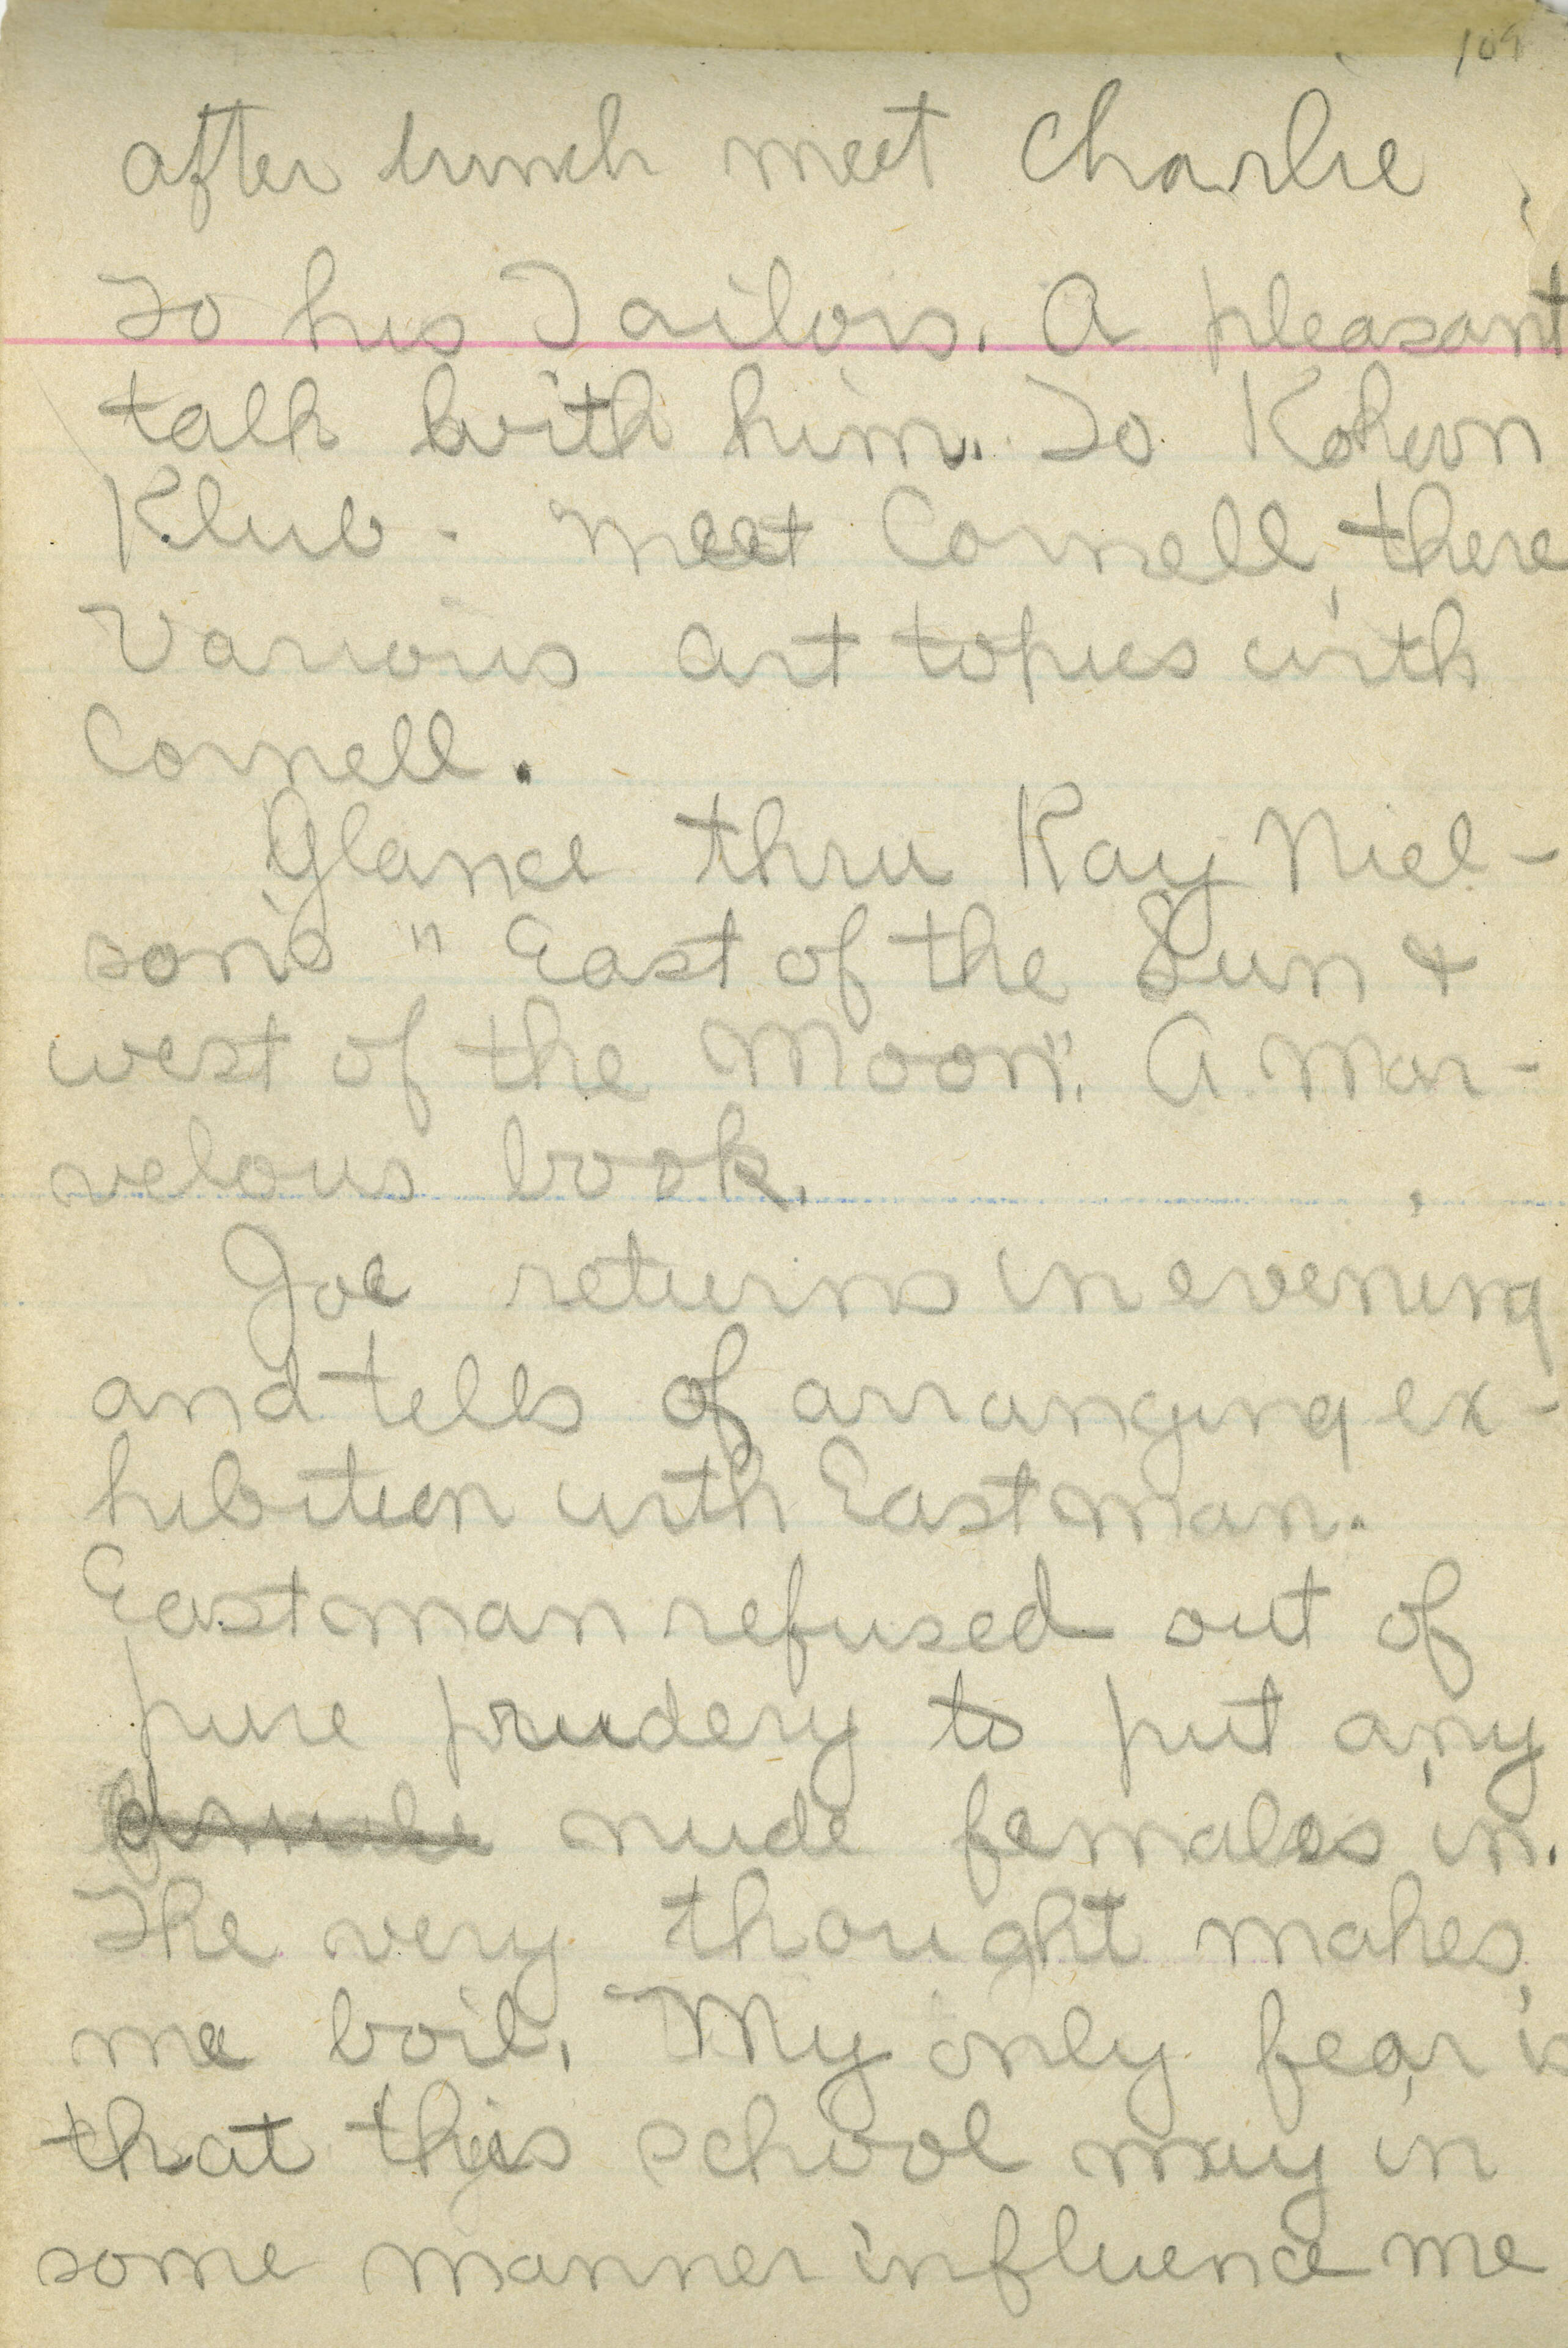 109
after lunch meet Charlie
To his Tailors. A pleasant
talk with him. To Kokoon
Klub. Meet Cornell, there
Various art topics with
Cornell.
Glance thru Kay Niel-
son's "East of the Sun &
west of the Moon". A Mar-
velous book.
Joe returns in evening
and tells of arranging ex-
hibition with Eastman.
Eastman refused out of
pure prudery to put any
nude females in.
The very thought makes
me boil. My only fear is
that this school may in
some manner influence me